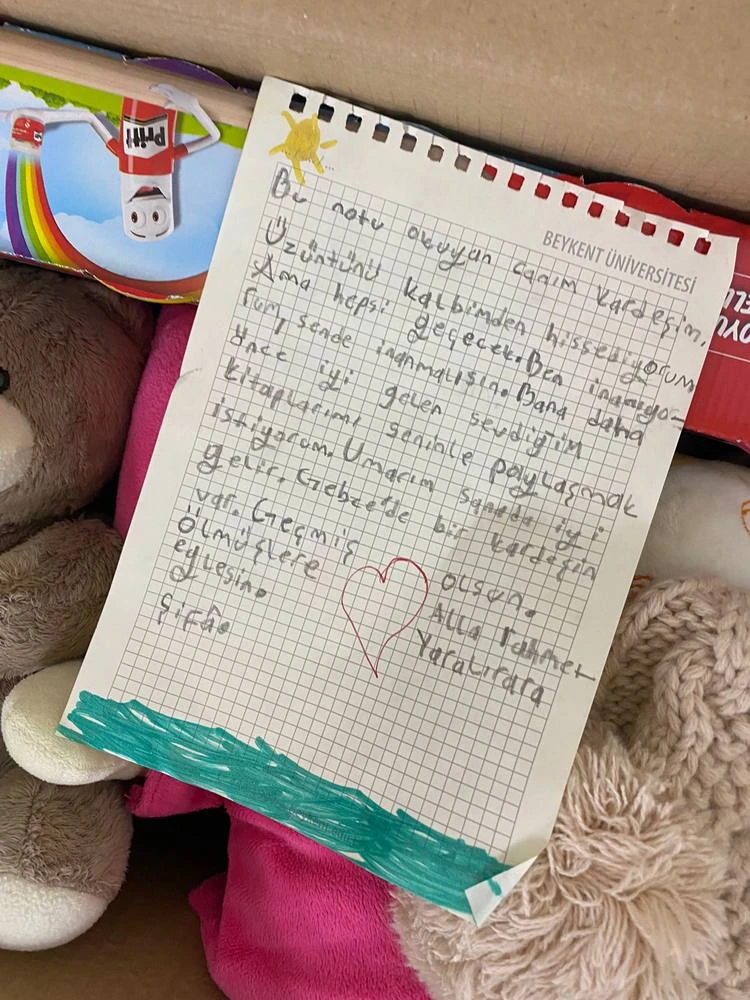 Pritt
BEYKENT ÜNİVERSİTESİ
Bu notu okuyan canım kardeşim,
Üzüntünü kalbimden hissediyorum
Ama hepsi geçecek. Ben inanıyo-
rum, sende inanmalısın. Bana daha
önce iyi gelen sevdiğim
kitaplarımı seninle paylaşmak
istiyorum. Umarım sanada iyi
gelir. Gebze'de bir kardeşin
var. Geçmiş olsun.
Ölmüşlere Alla rahmet
eylesin. Yaralırara
Şifâ.